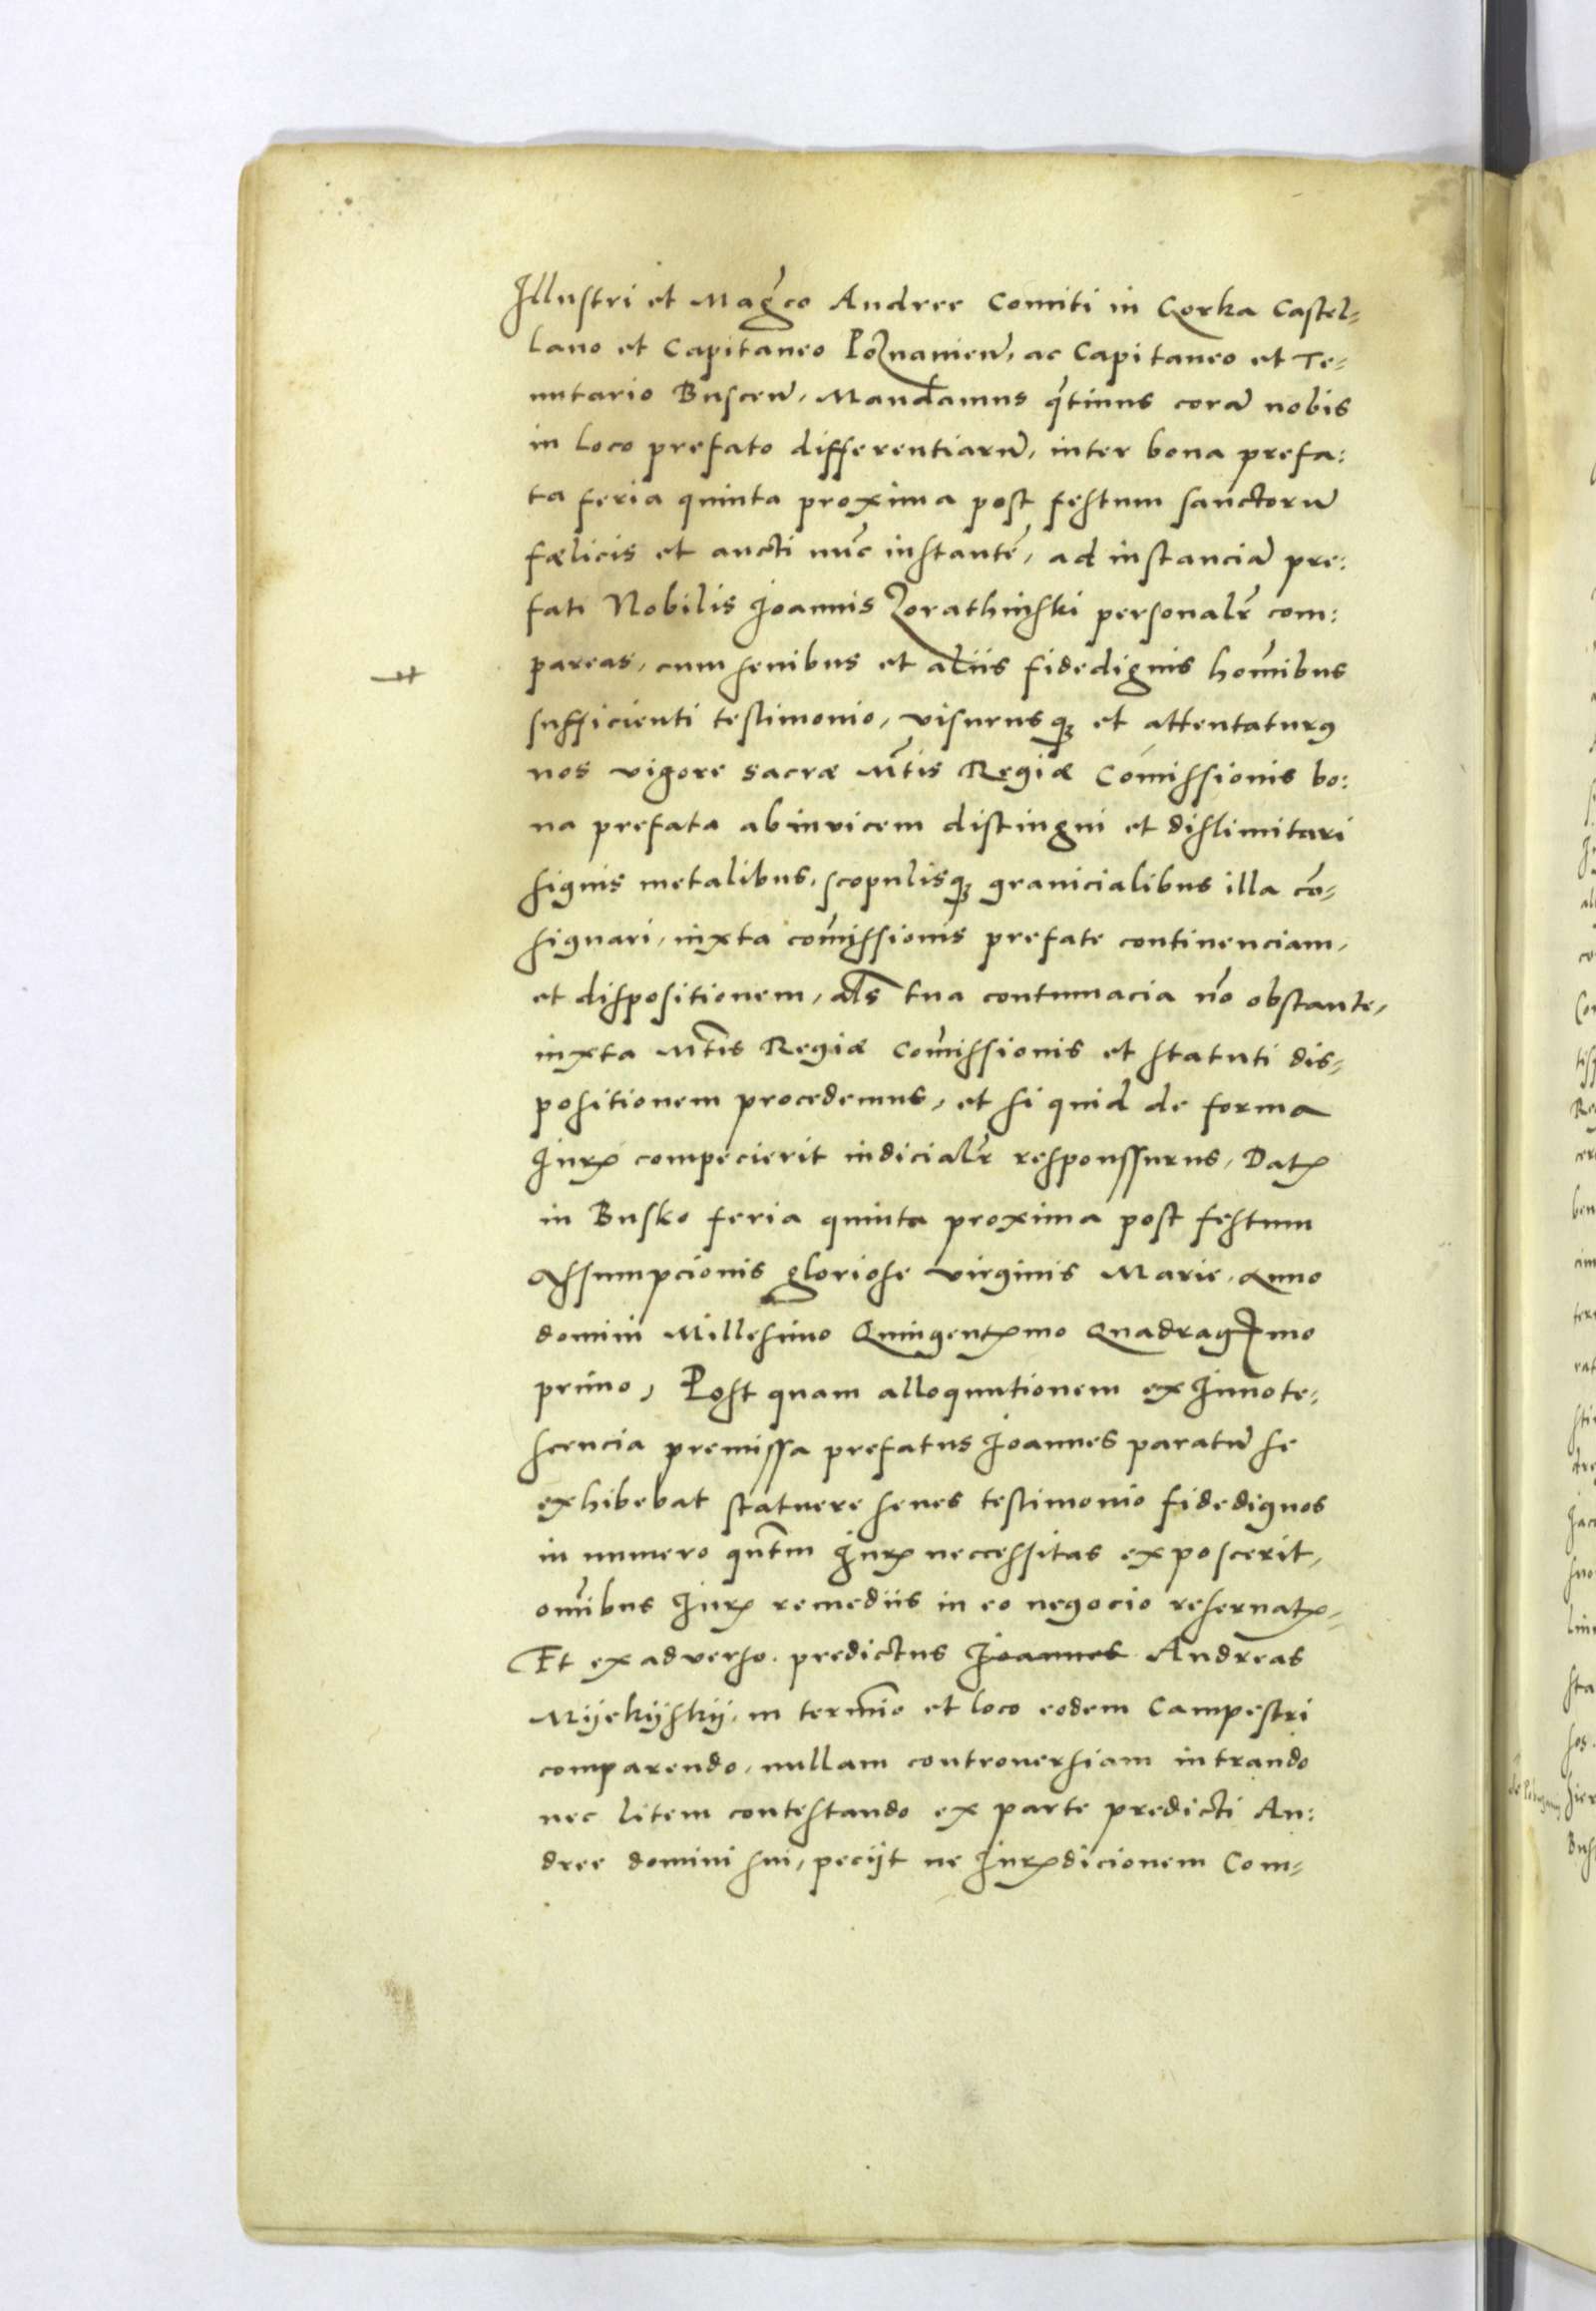 Illustri et Mag̃co Andree Comiti in Gorka Castel-
lano et Capitaneo Poznanien̄, ac Capitaneo et Te-
nutario Buscen̄, Mandamus q̃tinus corã nobis
in loco prefato differentiarũ, inter bona prefa:
ta feria quinta proxima post festum sanctorũ
fælicis et aucti nũc instantẽ, ad instanciã pre:
fati Nobilis Joannis Zorathinski personalr̃ com:
pareas, cum senibus et aliis fidedignis hom̃ibus
sufficienti testimonio, visurusq; et attentaturꝰ
nos vigore sacræ Mt̃is Regiæ Com̃issionis bo:
na prefata abinvicem distingui et dislimitari
signis metalibus, scopulisq; granicialibus illa cõ-
signari, iuxta com̃issionis prefate continenciam,
et dispositionem, al̃s tua contumacia nõ obstante,
iuxta Mt̃is Regiæ Com̃issionis et statuti dis-
positionem procedemus, et si quid de forma
Jurꝭ compecierit iudicialr̃ responssurus, Datꝭ
in Busko feria quinta proxima post festum
Assumpcionis gloriose virginis Marie, Anno
domini Millesimo Quingentꝭmo Quadragꝭmo
primo, Post quam alloquutionem ex Innote-
scencia premissa prefatus Joannes paratũ se
exhibebat statuere senes testimonio fidedignos
in numero qũtm Jurꝭ neccessitas exposcerit,
om̃ibus Jurꝭ remediis in eo negocio reseruatꝭ,
Et ex adverso, predictus Joannes Andreas
Myekyskij, in term̃io et loco eodem Campestri
comparendo, nullam controuersiam intrando
nec litem contestando ex parte predicti An:
dree domini sui, pecijt ne Jurꝭdicionem Com-